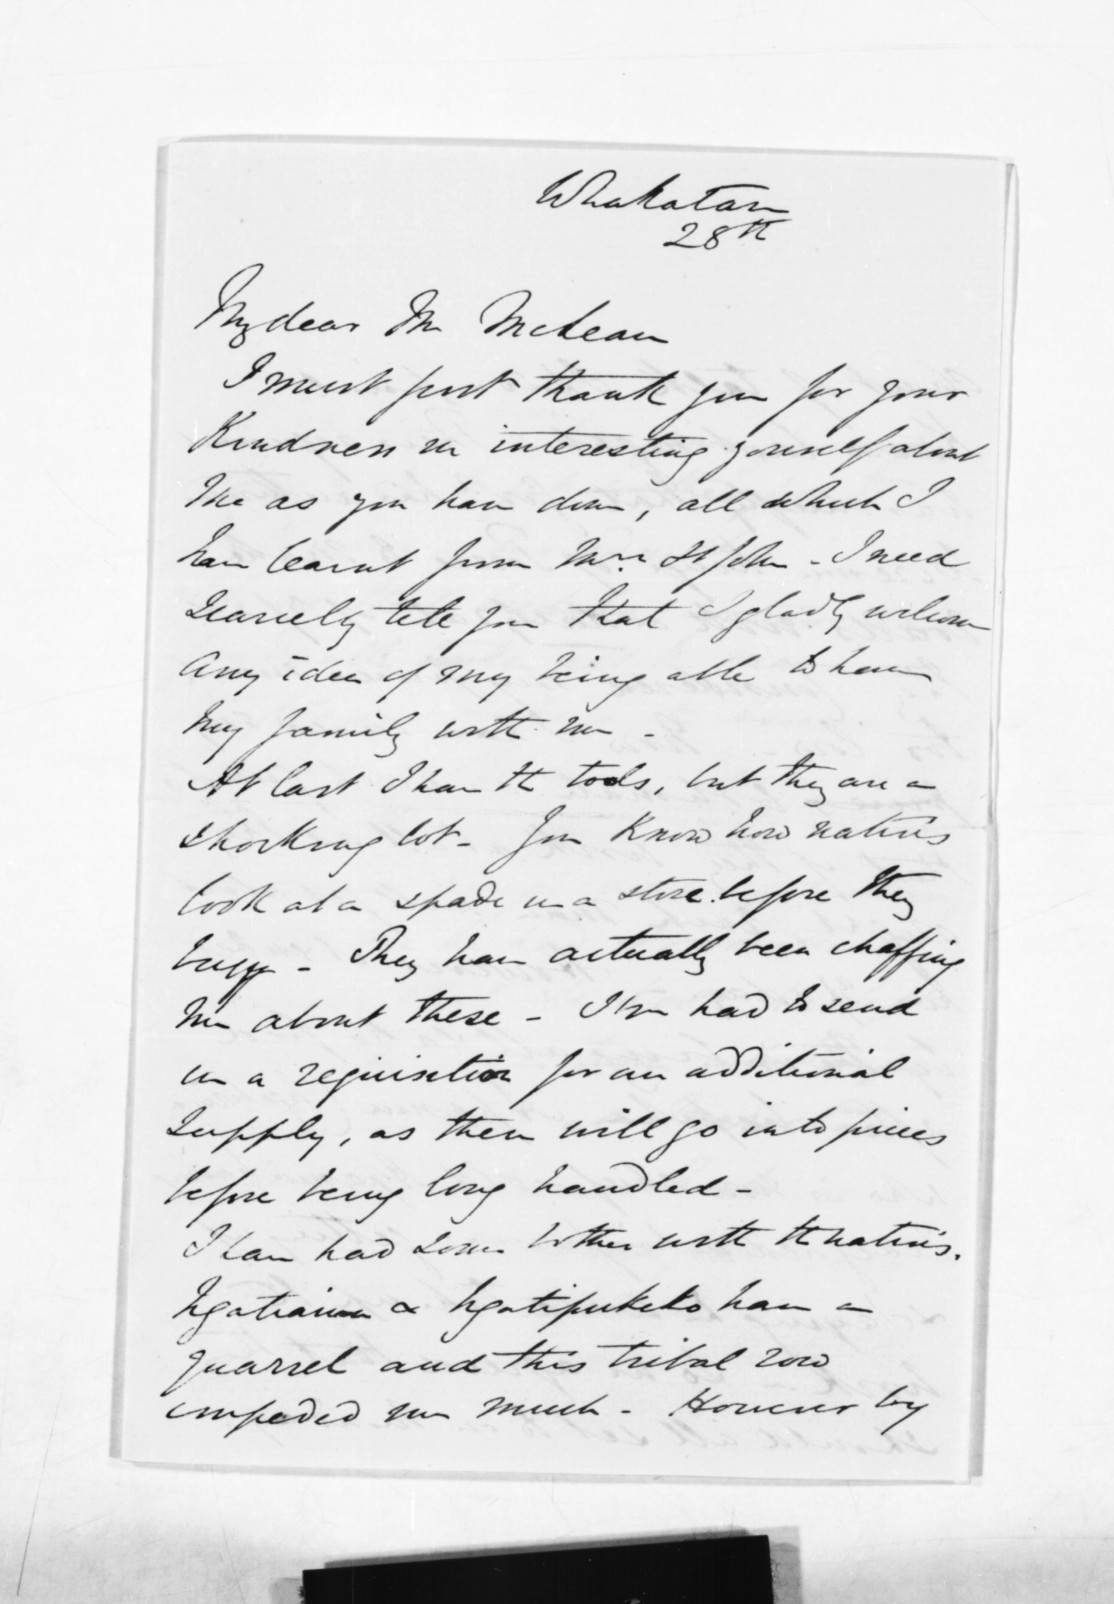 Whakatane
28th
My dear Mr McLean
I must first thank you for your
kindness in interesting yourself about
me as you have done, all which I
have learnt from Mrs. St John - I need
scarcely tell you that I gladly welcome
any idea of my being able to have
my family with me -
At last I have the tools, but they are a
shocking lot - You know how natives
look at a spade in a store before they
buy - They have actually been chaffing
me about these - I have had to send
in a requisition for an additional
supply, as these will go into pieces
before being long handled -
I have had some bother with the natives.
Ngatiawa & Ngatipukeko have a
quarrel and this tribal row
impeded me much - However by